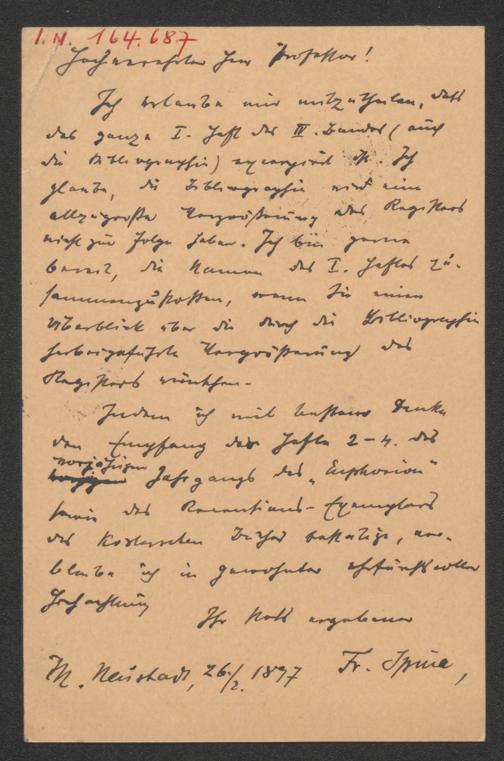 I. N. 164.687
Hochverehrter Herr Professor!
Ich erlaube mir mitzutheilen, daß
das ganze I. Heft des IV. Bandes (auch
die Bibliographie) excerpirt ist. Ich
glaube, die Bibliographie wird eine
allzugroße Vergrößerung des Registers
nicht zur Folge haben. Ich bin gerne
bereit, die Namen des I. Heftes zu-
sammenzustellen, wenn Sie einen
Überblick über die durch die Bibliographie
herbeigeführte Vergrößerung des
Registers wünschen.
Indem ich mit bestem Danke
den Empfang der Hefte 2-4. des
vorjährigen
Jahrgangs des „Euphorion"
sowie des Recensions-Exemplars
des Koster'schen Buches bestätige, ver-
bleibe ich in gewohnter ehrfurchtsvoller
Hochachtung
Ihr stets ergebener
M. Neustadt, 26./2. 1897 Fr. Spina,